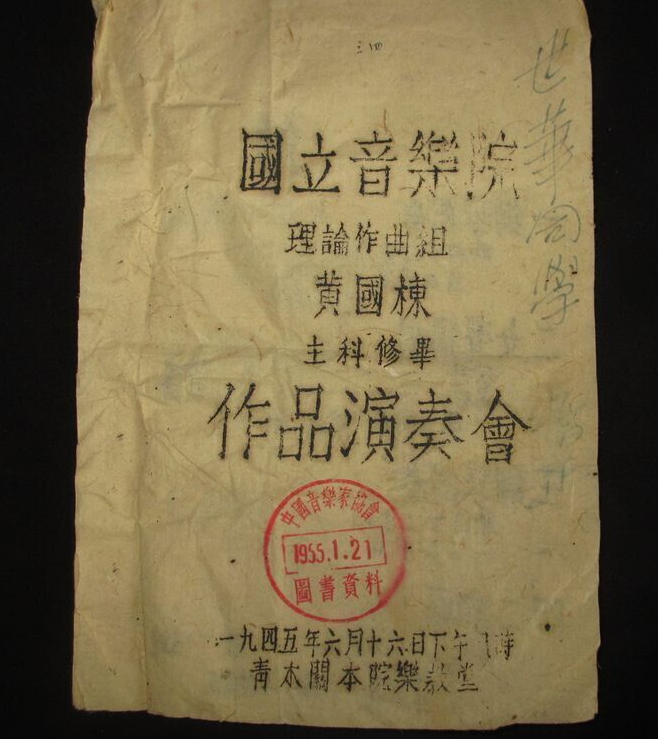 國立音樂院
理論作曲組
黄國棟
主科修畢
作品演奏會
世華同學
中國音樂家協會
1955.1.21
圖書資料
一九四五年六月十六日下午 時
青木關本院樂教堂